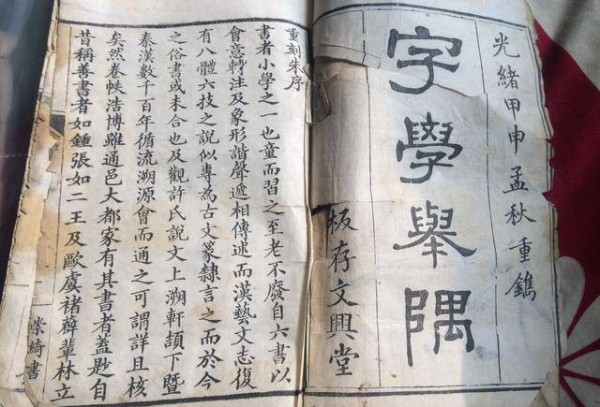 光緒甲申孟秋重鐫
字學舉隅
板存文興堂
重刻朱序
書者小學之一也童而習之至老不廢自六書以
會意轉注及象形諧聲遞相傳述而漢藝文志復
有八體六技之說似專為古文篆隸言之而於今
之俗書或未合也及觀許氏說文上溯軒頡下暨
秦漢數千百年循流溯源會而通之可謂詳且核
矣然卷帙浩博雖通邑大都家有其書者蓋尟自
昔稱善書者如鍾張如二王及歐虞褚薛輩林立
崇綺書